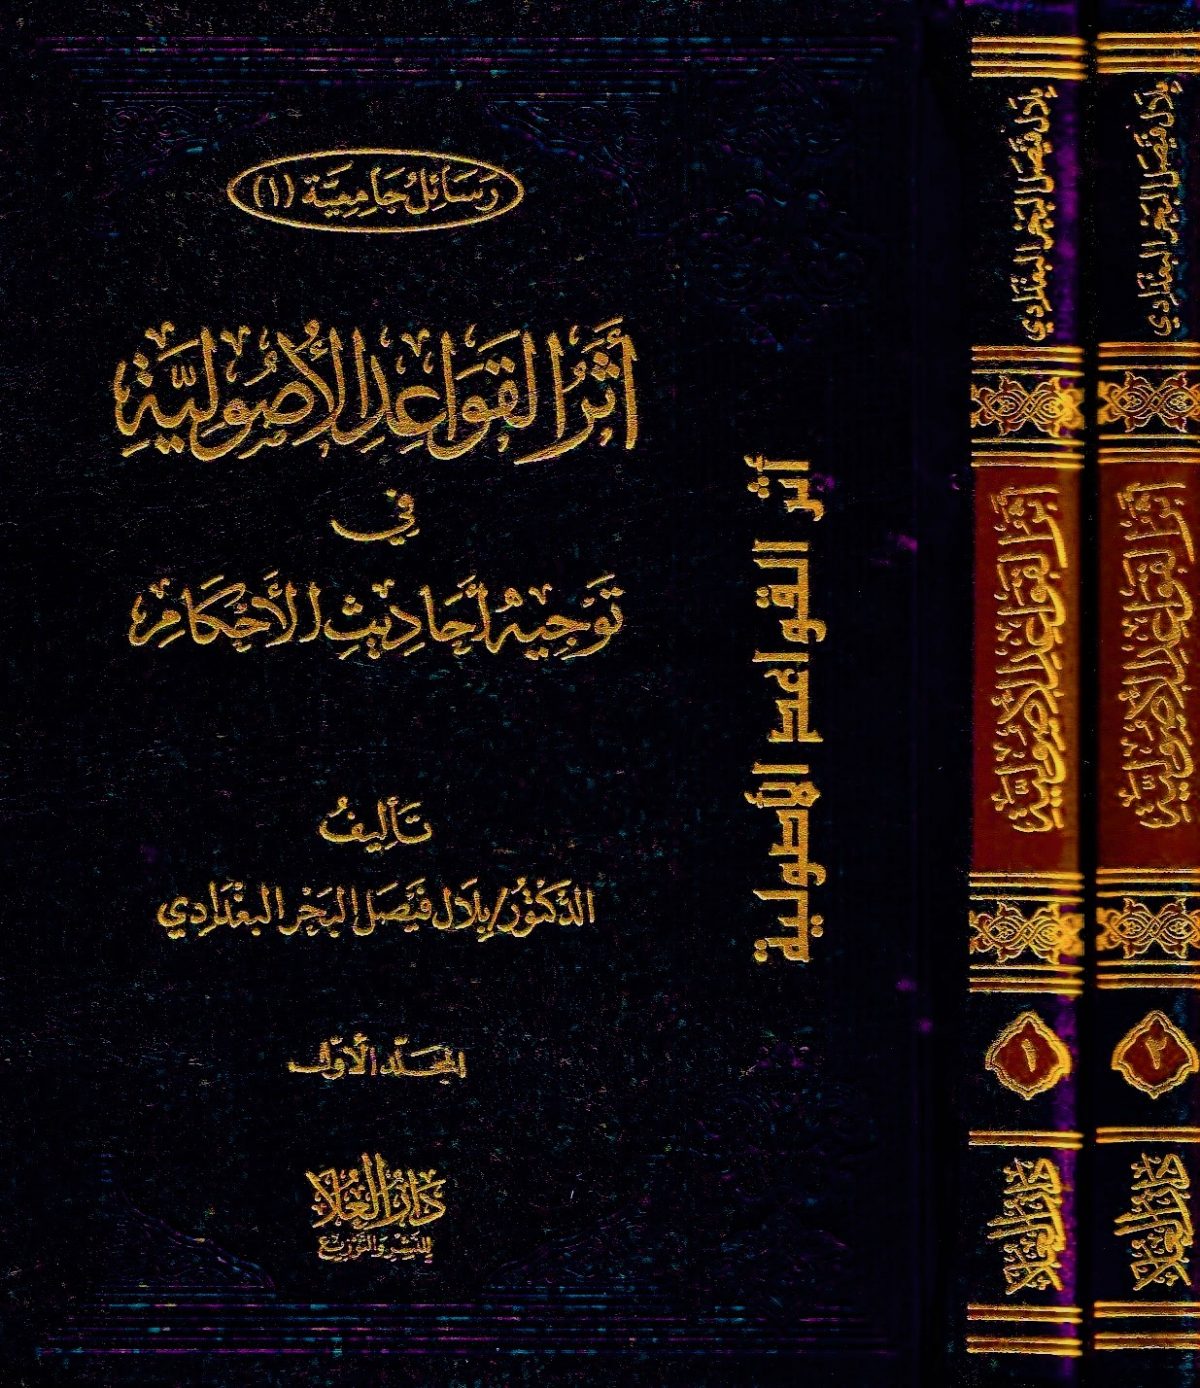 رَسَائِلُ جَامِعِيَّة (١)
أَثَرُ القَوَاعِدِ الأُصُولِيَّةِ
فِي
تَوْجِيهِ أَحَادِيثِ الأَحْكَامِ
تَأْلِيفُ
الدَّكْتُور/بِلَال فَيْصَل البَحْر البَغْدَادِي
المجَلّد الأَوّل
دَارُ العُلَا
لِلنَّشْرِ وَالتَّوْزِيع
أثر القواعد الأصولية
بِلَال فَيْصَل البَحْر البَغْدَادِي
أَثَرُ القَوَاعِدِ الأُصُولِيَّةِ
١
دَارُ العُلَا
بِلَال فَيْصَل البَحْر البَغْدَادِي
أَثَرُ القَوَاعِدِ الأُصُولِيَّةِ
٢
دَارُ العُلَا